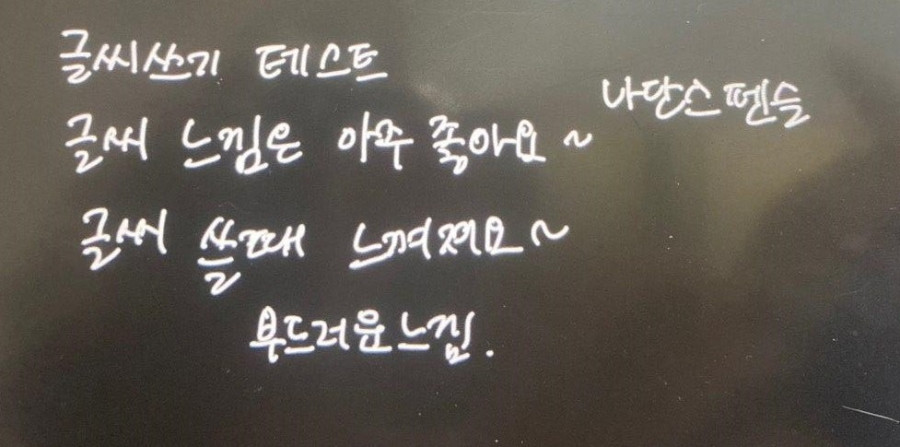 글씨쓰기 테스트
나단스 펜슬
글씨 느낌은 아주 좋아요~
글씨 쓸때 느껴져요~
부드러운느낌.